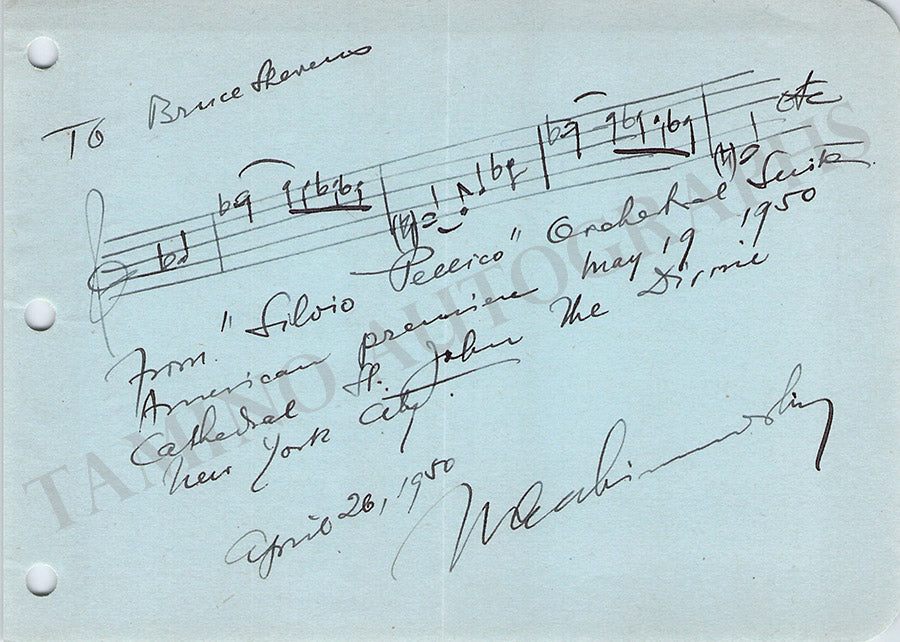 To Bruce Stevens
etc
From "Silvio Pellico" Orchestral Suite
American premiere May 19 1950
Cathedral St. John The Divine
New York City.
April 26, 1950
TAMINO AUTOGRAPHS